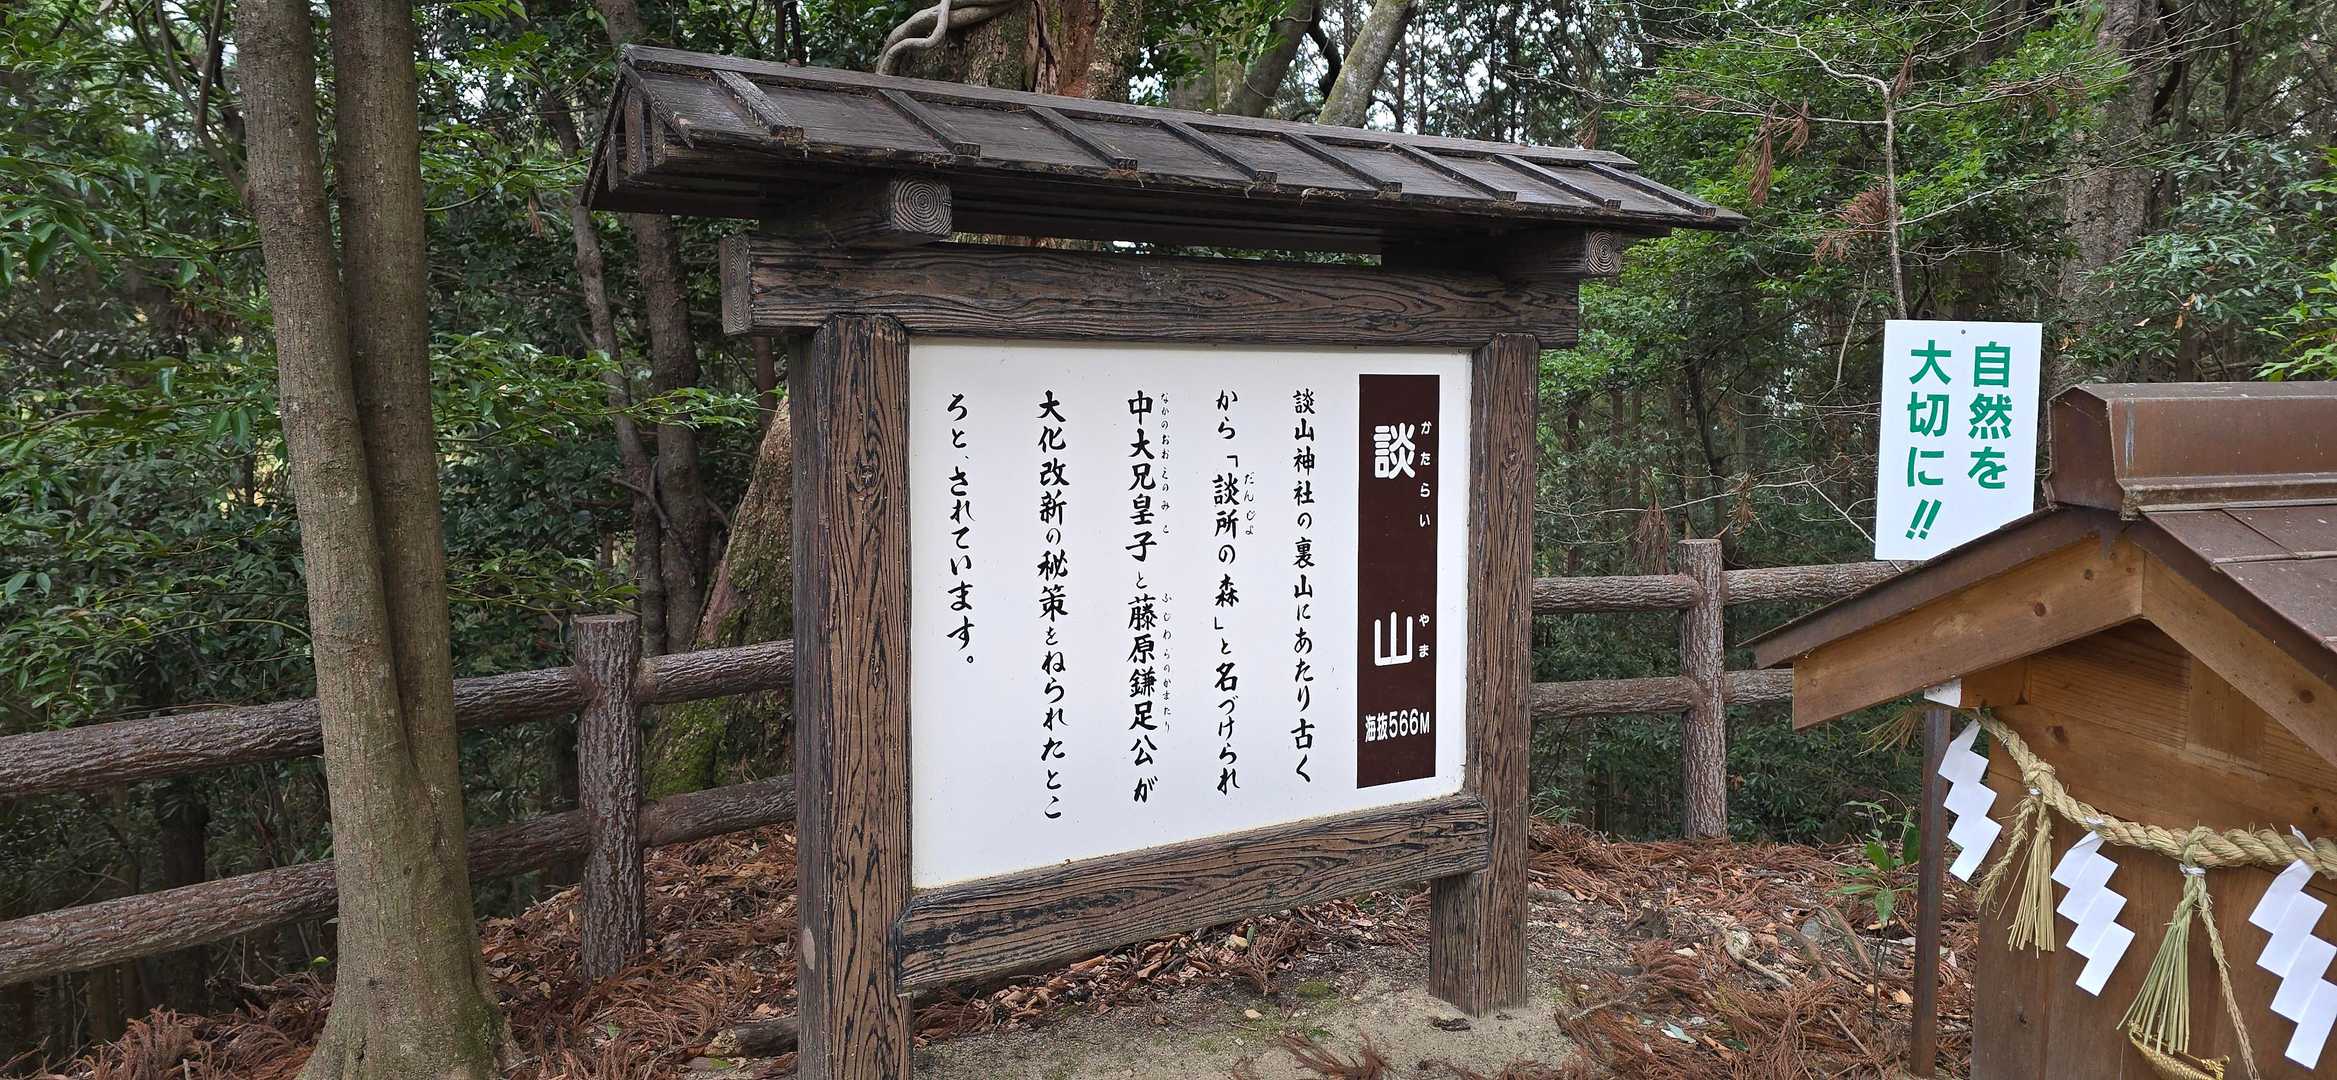 談山
かたらいやま
海抜566M
談山神社の裏山にあたり古く
から「談所の森」と名づけられ
だんじょ
中大兄皇子と藤原鎌足公が
なかのおおえのみこ
ふじわらのかまたり
大化改新の秘策をねられたとこ
ろと、されています。
自然を
大切に!!